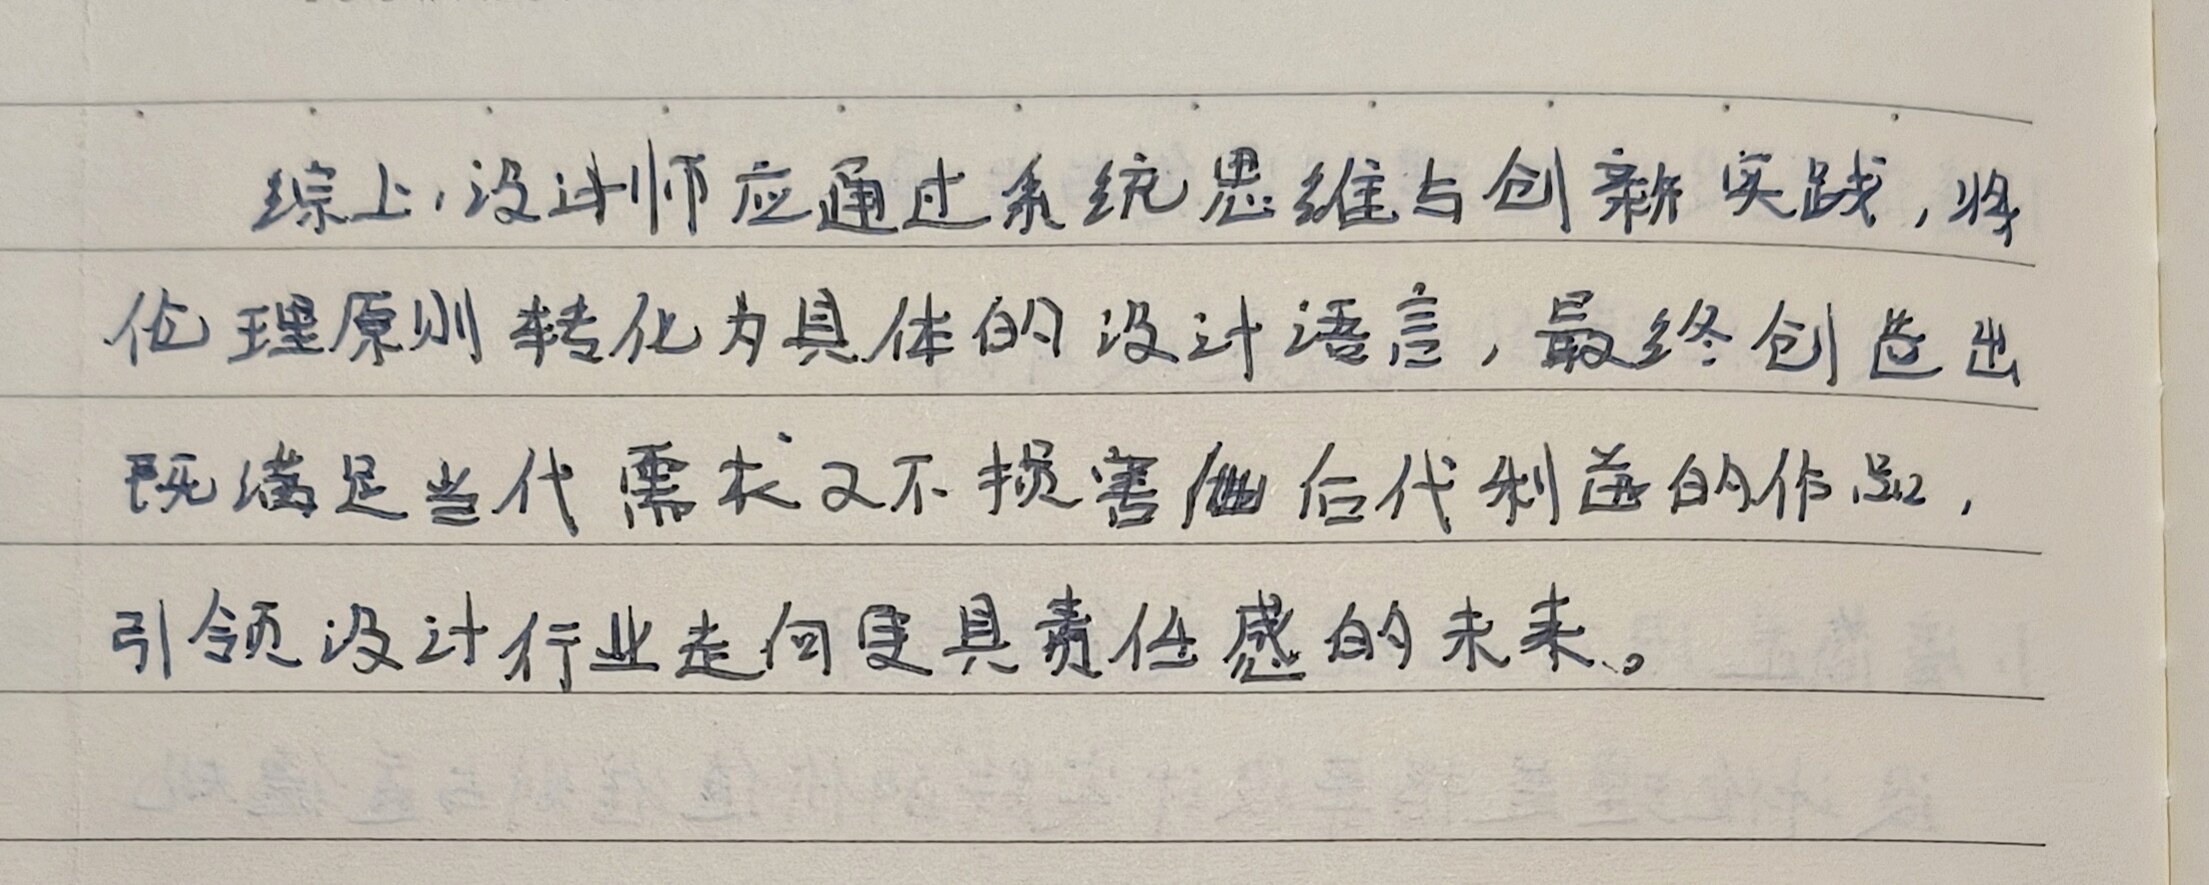 综上,设计师应通过系统思维与创新实践,将
伦理原则转化为具体的设计语言,最终创造出
既满足当代需求又不损害后代利益的作品,
引领设计行业走向更具责任感的未来。